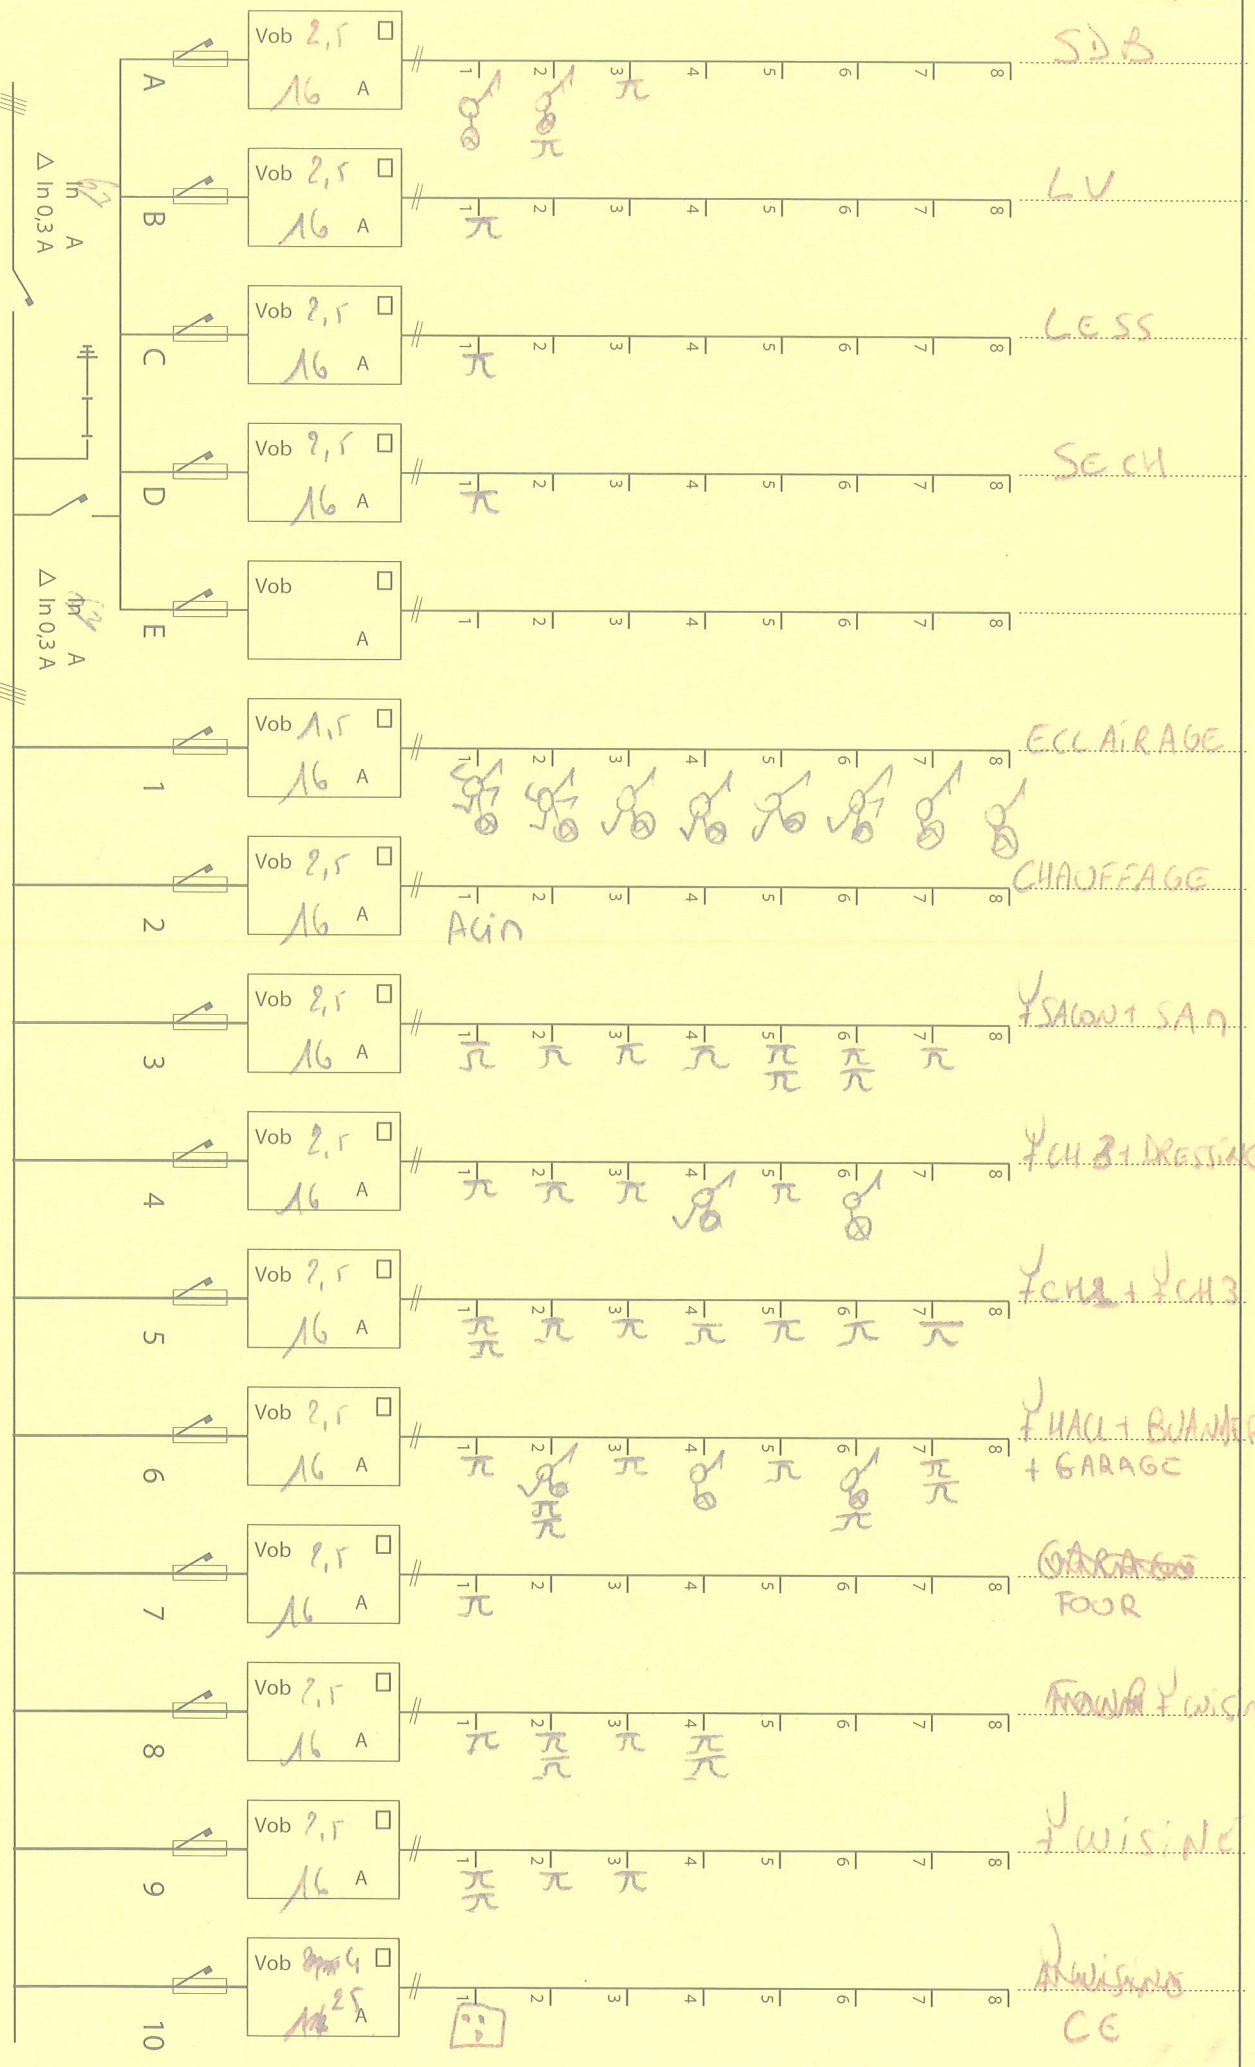 A Vob 2,5 16 A 1 2 3 4 5 6 7 8 SDB
B Vob 2,5 16 A 1 2 3 4 5 6 7 8 LV
C Vob 2,5 16 A 1 2 3 4 5 6 7 8 LESS
D Vob 2,5 16 A 1 2 3 4 5 6 7 8 SECH
E Vob A 1 2 3 4 5 6 7 8
In A
Δ In 0,3 A
In A
Δ In 0,3 A
1 Vob 1,5 16 A 1 2 3 4 5 6 7 8 ECLAiRAGE
2 Vob 2,5 16 A 1 2 3 4 5 6 7 8 CHAUFFAGE
Alim
3 Vob 2,5 16 A 1 2 3 4 5 6 7 8 SALON + SAM
4 Vob 2,5 16 A 1 2 3 4 5 6 7 8 + DRESSiNG
5 Vob 2,5 16 A 1 2 3 4 5 6 7 8 + CH3
6 Vob 2,5 16 A 1 2 3 4 5 6 7 8 HALL + BUANDER
+ GARAGE
7 Vob 2,5 16 A 1 2 3 4 5 6 7 8 GARAGE
FOUR
8 Vob 2,5 16 A 1 2 3 4 5 6 7 8
9 Vob 2,5 16 A 1 2 3 4 5 6 7 8 CUISINE
10 Vob 4 25 A 1 2 3 4 5 6 7 8
CE